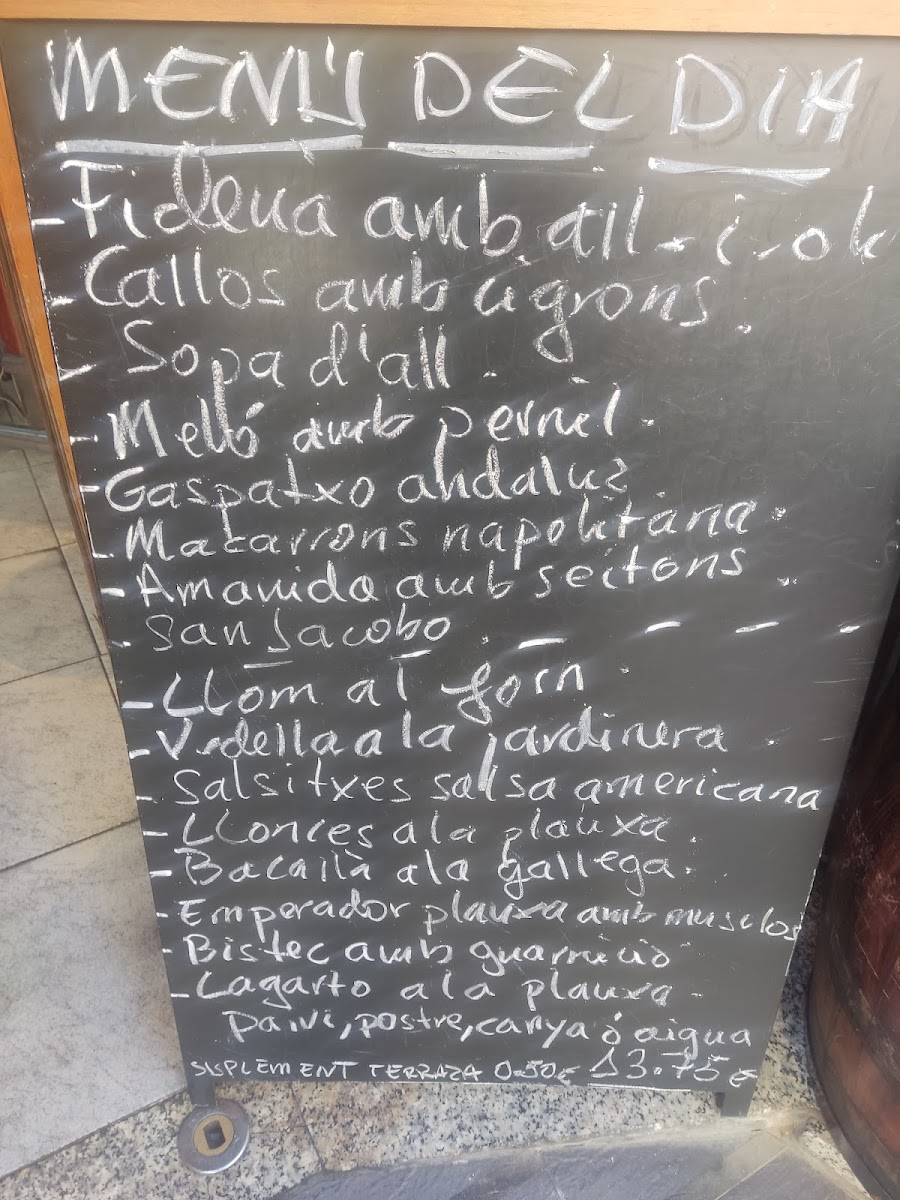 MENÚ DEL DIA
- Fideua amb all-i-ok
- Callos amb cigrons.
- Sopa d'all.
- Meló amb pernil.
- Gaspatxo andaluz
- Macarrons napolitana.
- Amanida amb seitons
- San Jacobo.
- Llom al forn.
- Vedella a la jardinera.
- Salsitxes salsa americana
- Llonces a la plauxa.
- Bacallà a la gallega.
- Emperador plauxa amb musclos
- Bistec amb guarnició
- Lagarto a la plauxa.
Pa, vi, postre, canya ó aigua
SUPLEMENT TERRAZA 0.50€ 13.75€